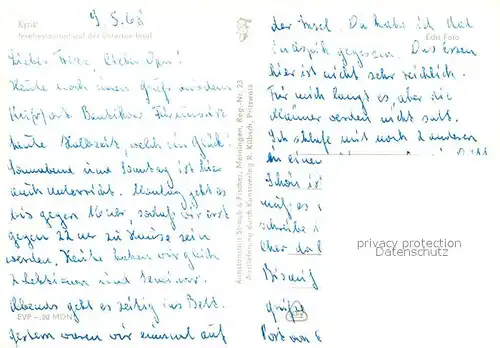 Kyritz
Inselrestaurant auf der Untersee-Insel
9.5.68
Liebe lieber Opa!
Heute noch einen Gruß aus dem
heute Halbzeit, welch ein Glück!
Sonnabend und Sonntag ist hier
auch Unterricht. Montag geht es
bis gegen 16 Uhr, wir erst
gegen 22 Uhr zu Hause sein
werden. Heute haben wir gleich
2 Lektionen und Seminar.
Abends geht es zeitig ins Bett.
EVP -.20 MDN
gestern waren wir einmal auf
Kunstanstalt Straub & Fischer, Meiningen, Reg.-Nr. 23
Auslieferung durch Kunstverlag R. Kübsch, Pritzwalk
der Insel. Da habe ich Aal
Echt Foto
in Aspik gegessen. Das Essen
hier ist nicht sehr reichlich.
Für mich langt es, aber die
Männer werden nicht satt.
Ich schlafe mit noch 2 anderen
in einem
Schön is
muß es
schreibe
Bis auf
Grüße
Post von
privacy protection
Datenschutz